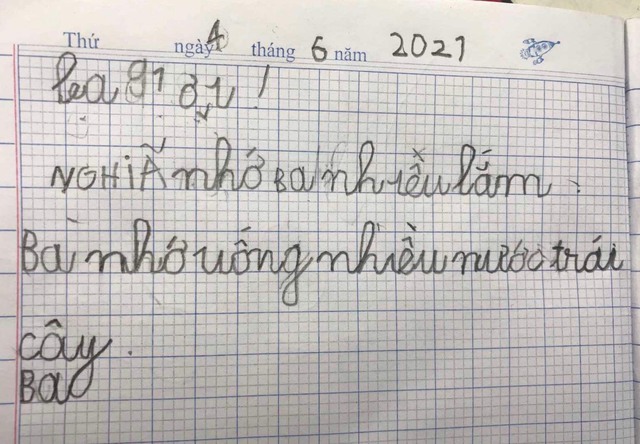 Thứ ngày 4 tháng 6 năm 2021
NGHiÃ nhớ Ba nhiều lắm.
Ba nhớ uống nhiều nước trái
cây.
Ba